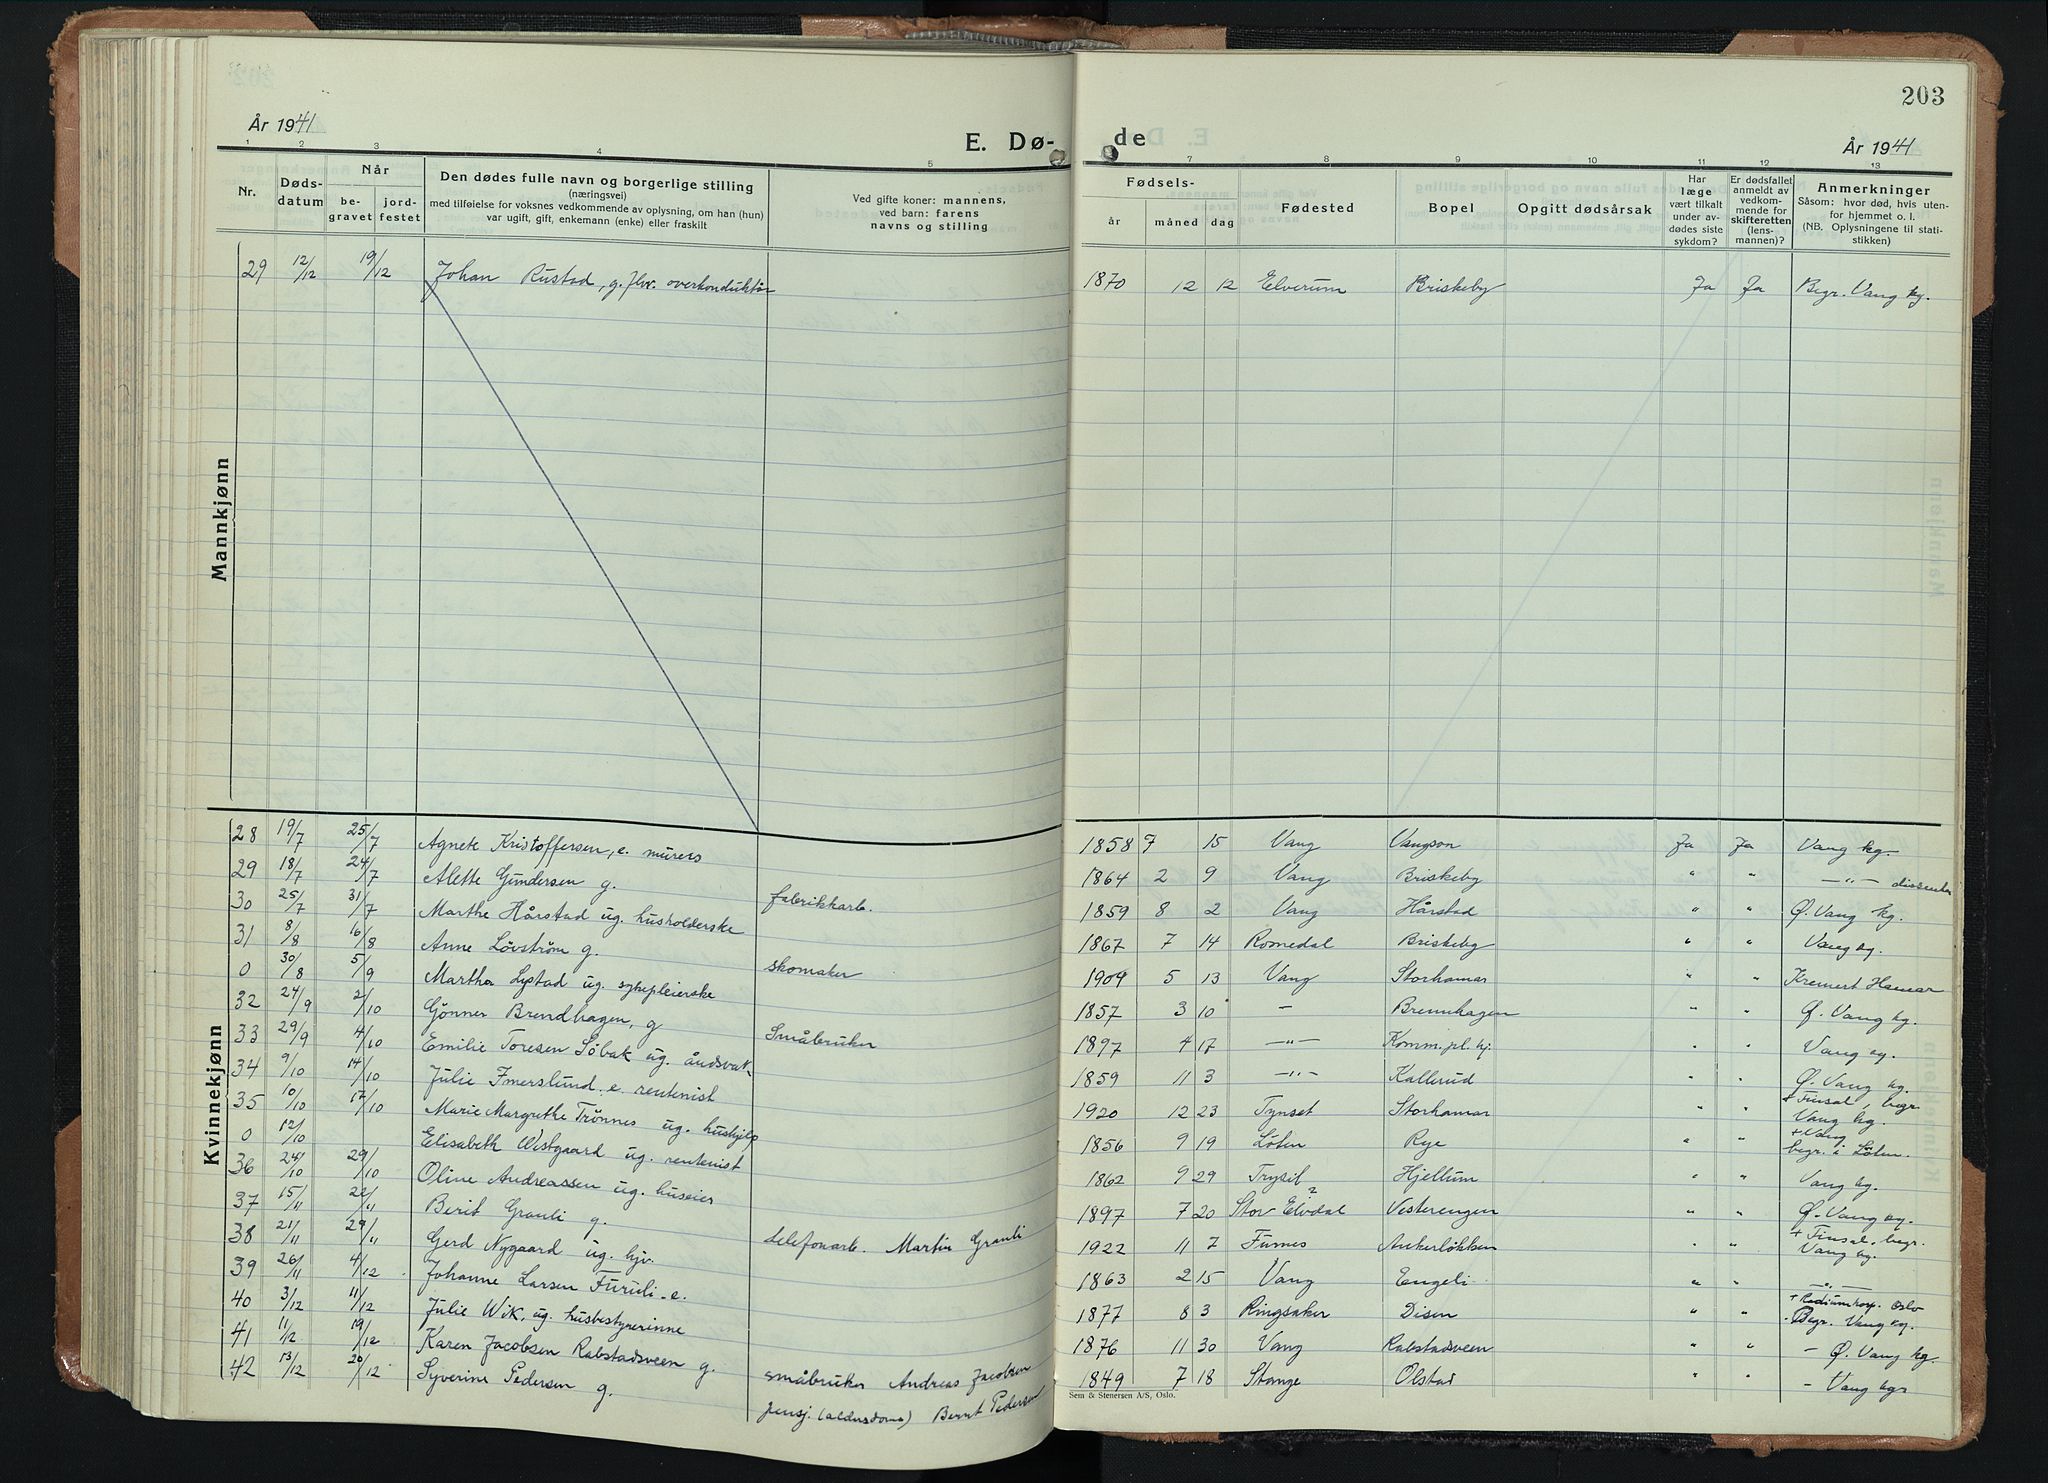 203
År 1941
E. Dø-
de
År 1941
1 2 3 4 5 7 8 9 10 11 12 13
Nr.
Døds-
datum
Når
be-
gravet
jord-
festet
Den dødes fulle navn og borgerlige stilling
(næringsvei)
med tilføielse for voksnes vedkommende av oplysning, om han (hun)
var ugift, gift, enkemann (enke) eller fraskilt
Ved gifte koner: mannens,
ved barn: farens
navns og stilling
Fødsels-
år
måned
dag
Fødested
Bopel
Opgitt dødsårsak
Har
læge
vært tilkalt
under av-
dødes siste
sykdom?
Er dødsfallet
anmeldt av
vedkom-
mende for
skifteretten
(lens-
mannen)?
Anmerkninger
Såsom: hvor død, hvis uten-
for hjemmet o. l.
(NB. Oplysningene til stati-
stikken)
Mannkjønn
29 12/12 19/12 Johan Rustad, g. fhv. overkonduktør 1870 12 12 Elverum Briskeby Ja Ja Begr. Vang kg.
Kvinnekjønn
28 19/7 25/7 Agnete Kristoffersen, e. murers 1858 7 15 Vang Vangson Ja Ja Vang kg.
29 18/7 24/7 Alette Gundersen g. fabrikkarb. 1864 2 9 Vang Briskeby " " —"— dissenter
30 25/7 31/7 Marthe Hårstad ug. husholderske 1859 8 2 Vang Hårstad " " Ø. Vang kg.
31 8/8 16/8 Anne Lövström g. skomaker 1867 7 14 Romedal Briskeby " " Vang kg.
0 30/8 5/9 Martha Lystad ug. sykepleierske 1909 5 13 Vang Storhamar " " Kremert Hamar
32 24/9 2/10 Gönner Brendhagen, g Småbruker 1857 3 10 — Brennhagen " " Ø. Vang kg.
33 29/9 4/10 Emilie Toresen Söbak ug. åndsvak 1897 4 17 —"— Komm.pl.hj. " " Vang kg.
34 9/10 14/10 Julie Imerslund e. rentenist 1859 11 3 —"— Kallerud " " Ø. Vang kg.
35 10/10 17/10 Marie Margrethe Trönnes ug. hushjelp 1920 12 23 Tynset Storhamar " " + Finsal, begr.
Vang kg.
0 12/10 Elisabeth Westgaard ug. rentenist 1856 9 19 Löten Rye " " + Vang
begr. i Löten.
36 24/10 29/10 Oline Andreassen ug. huseier 1862 9 29 Trysil Hjellum " " Vang kg.
37 15/11 22/11 Berit Granli g. telefonarb. Martin Granli 1897 7 20 Stor Elvdal Vesterengen " " Ø. Vang kg.
38 21/11 29/11 Gerd Nygaard ug. hjv. 1922 11 7 Furnes Ankerløkken " " + Finsal, begr.
Vang kg.
39 26/11 4/12 Johanne Larsen Furuli e. 1863 2 15 Vang Engeli " " —"—
40 3/12 11/12 Julie Wik, ug. husbestyrerinne 1877 8 3 Ringsaker Disen " " + Radiumhosp. Oslo
Begr. Vang kg.
41 11/12 19/12 Karen Jacobsen Rabstadsveen g. småbruker Andreas Jacobsen 1876 11 30 Vang Rabstadsveen " " - Ø. Vang kg.
42 13/12 20/12 Syverine Pedersen g. pensj. (aldersdoms) Bernt Pedersen 1849 7 18 Stange Olstad " " - Vang kg.
Sem & Stenersen A/S, Oslo.